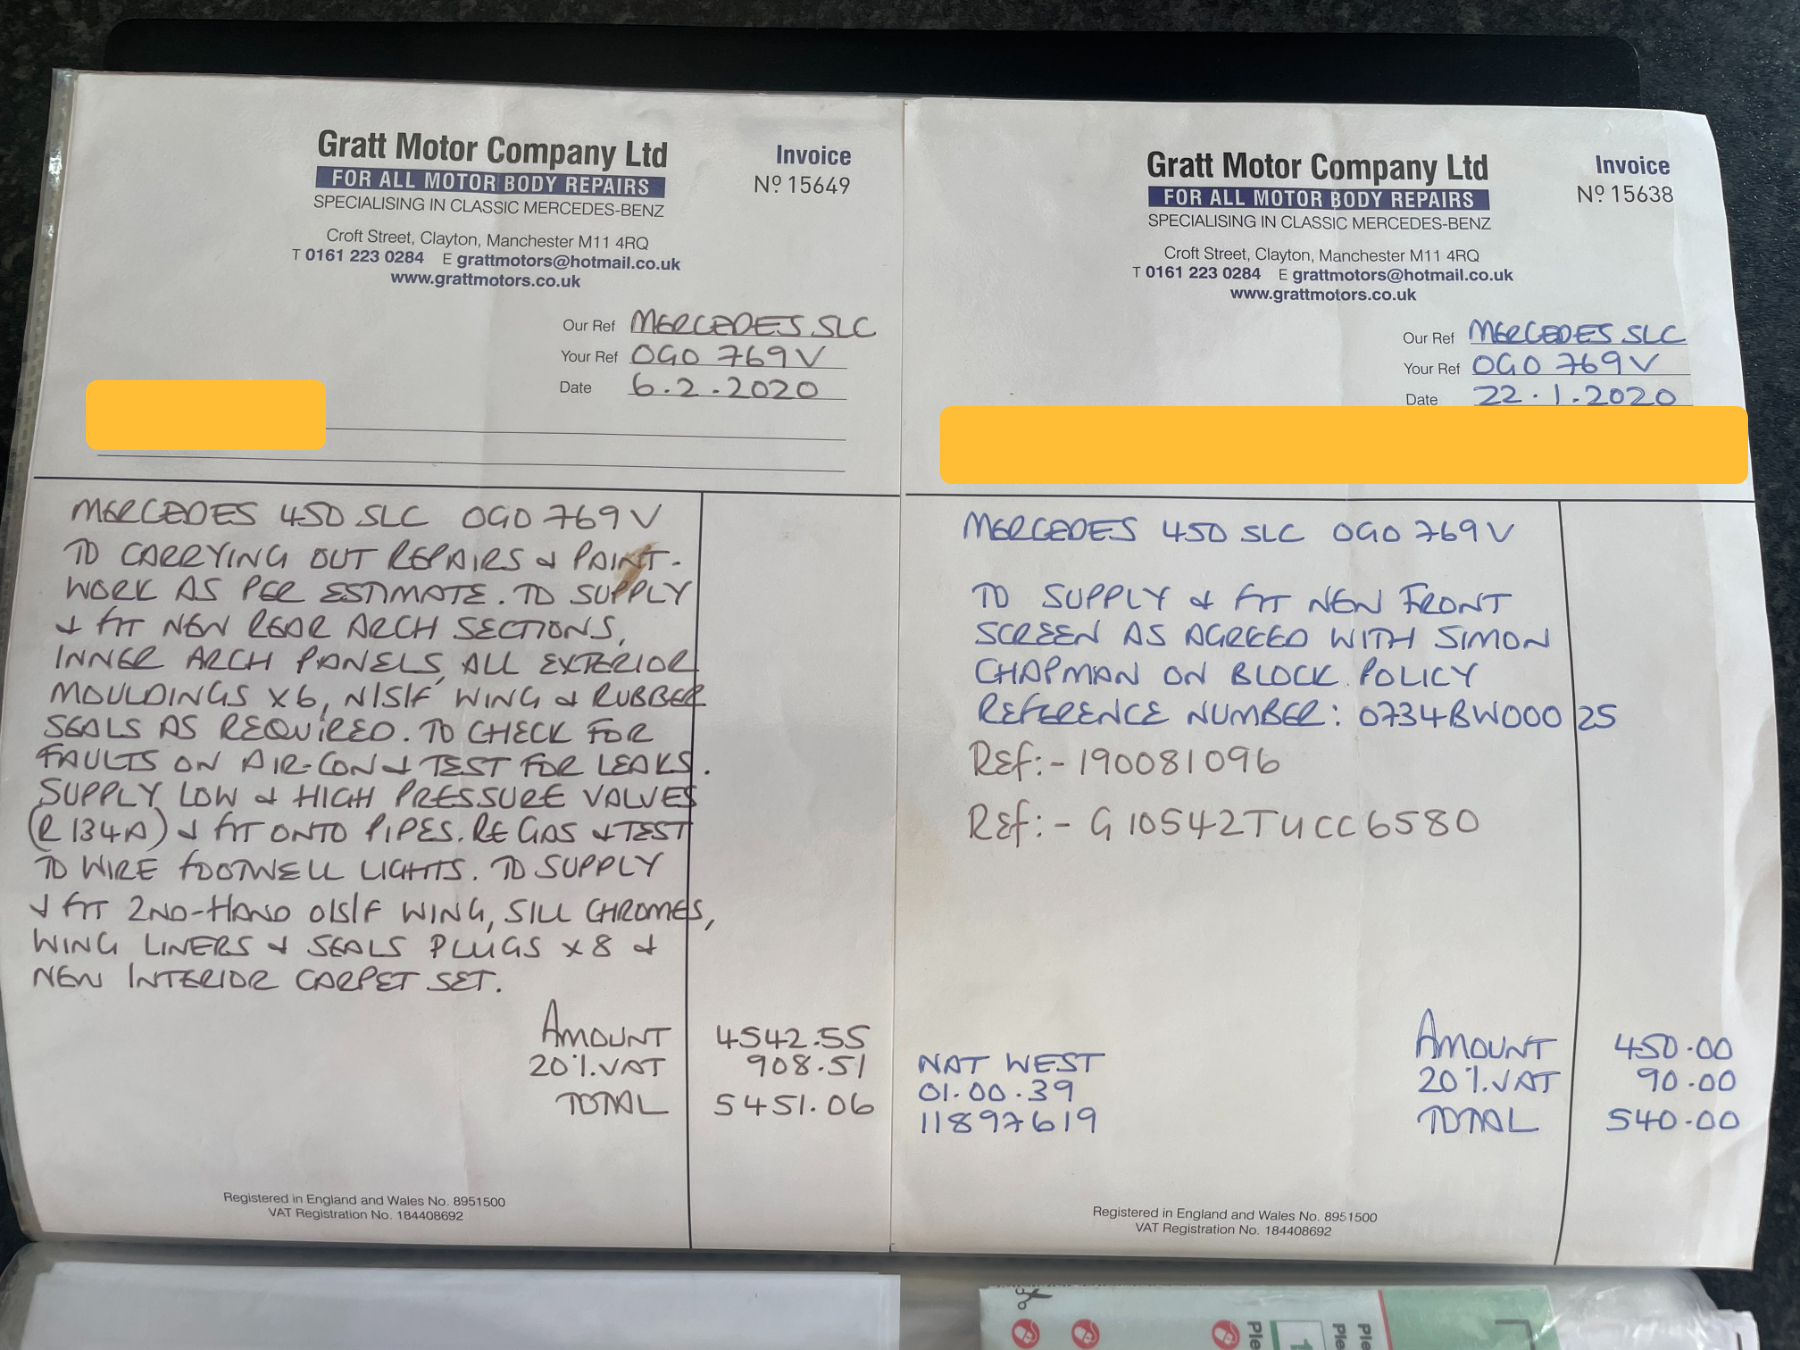 Gratt Motor Company Ltd
FOR ALL MOTOR BODY REPAIRS
SPECIALISING IN CLASSIC MERCEDES-BENZ
Croft Street, Clayton, Manchester M11 4RQ
T 0161 223 0284 E grattmotors@hotmail.co.uk
www.grattmotors.co.uk
Invoice
Nº 15649
Our Ref MERCEDES SLC
Your Ref OGO 769V
Date 6.2.2020
MERCEDES 450 SLC OGO 769V
TO CARRYING OUT REPAIRS & PAINT-
WORK AS PER ESTIMATE. TO SUPPLY
& FIT NEW REAR ARCH SECTIONS,
INNER ARCH PANELS, ALL EXTERIOR
MOULDINGS X6, N/S/F WING & RUBBER
SEALS AS REQUIRED. TO CHECK FOR
FAULTS ON AIR-CON & TEST FOR LEAKS.
SUPPLY LOW & HIGH PRESSURE VALVES
(R134A) & FIT ONTO PIPES. RE GAS & TEST
TO WIRE FOOTWELL LIGHTS. TO SUPPLY
& FIT 2ND-HAND O/S/F WING, SILL CHROMES,
WING LINERS & SEALS PLUGS X8 &
NEW INTERIOR CARPET SET.
AMOUNT 4542.55
20%.VAT 908.51
TOTAL 5451.06
Registered in England and Wales No. 8951500
VAT Registration No. 184408692
Gratt Motor Company Ltd
FOR ALL MOTOR BODY REPAIRS
SPECIALISING IN CLASSIC MERCEDES-BENZ
Croft Street, Clayton, Manchester M11 4RQ
T 0161 223 0284 E grattmotors@hotmail.co.uk
www.grattmotors.co.uk
Invoice
Nº 15638
Our Ref MERCEDES SLC
Your Ref OGO 769V
Date 22.1.2020
MERCEDES 450 SLC OGO 769V
TO SUPPLY & FIT NEW FRONT
SCREEN AS AGREED WITH SIMON
CHAPMAN ON BLOCK POLICY
REFERENCE NUMBER: 0734BW000 25
Ref:- 190081096
Ref:- G10542TUCC6580
NAT WEST
01.00.39
11897619
AMOUNT 450.00
20%.VAT 90.00
TOTAL 540.00
Registered in England and Wales No. 8951500
VAT Registration No. 184408692
Ple
1
Ple
Ple